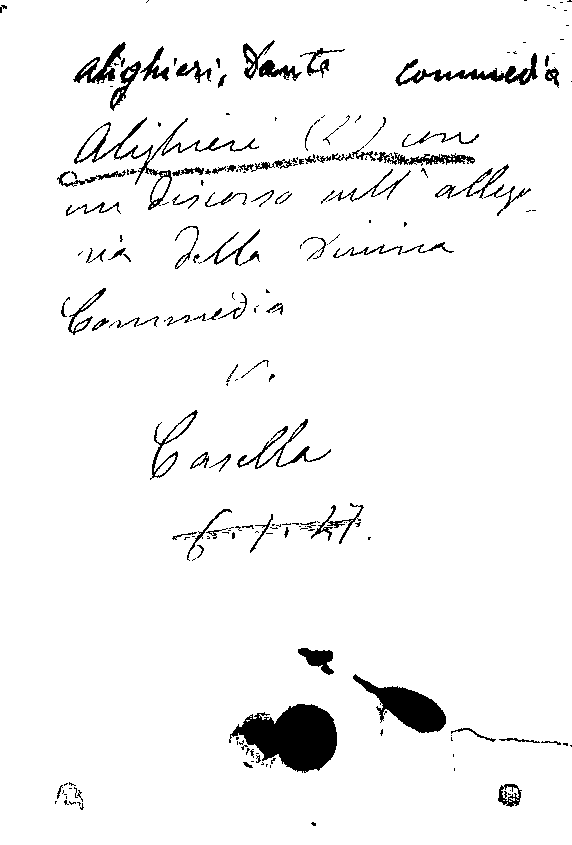 Alighieri, Dante commedia
Alighieri (L') con
un discorso sull' allego_
ria della Divina
Commedia
v.
Casella
6.1.47.